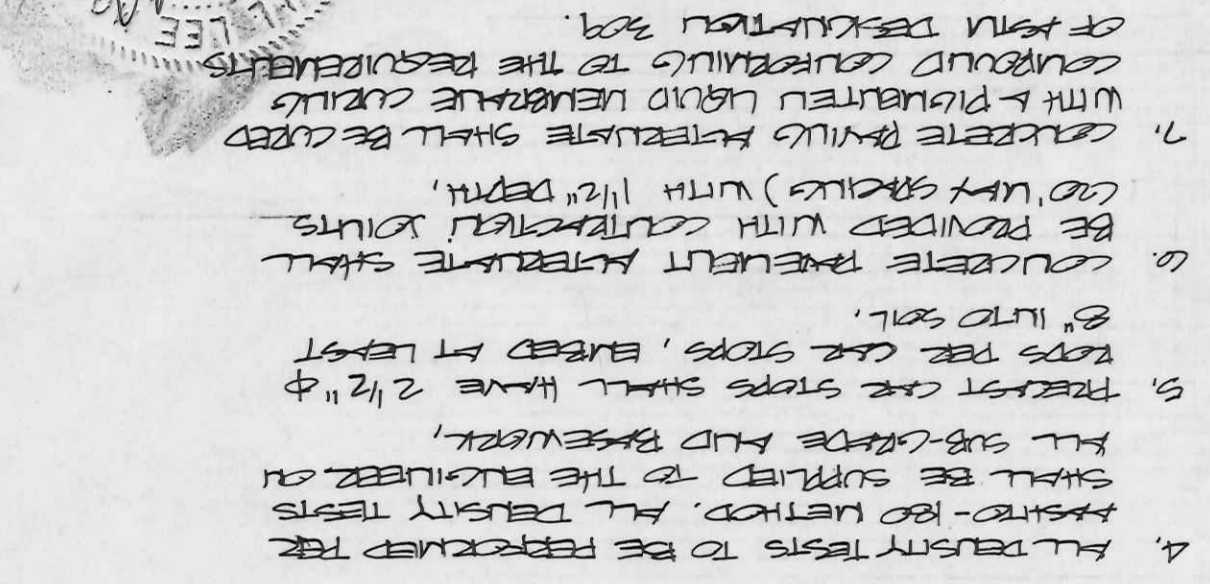 4. ALL DENSITY TESTS TO BE PERFORMED PER
AASHTO-180 METHOD. ALL DENSITY TESTS
SHALL BE SUPPLIED TO THE ENGINEER ON
ALL SUB-GRADE AND BASEWORK.
5. PRECAST CAR STOPS SHALL HAVE 2 1/2"Φ
RODS PER CAR STOPS, EMBED AT LEAST
8" INTO SOIL.
6. CONCRETE PAVEMENT ALTERNATE SHALL
BE PROVIDED WITH CONTRACTION JOINTS
(20' MAX SPACING) WITH 1 1/2" DEPTH.
7. CONCRETE PAVING ALTERNATE SHALL BE CURED
WITH A PIGMENTED LIQUID MEMBRANE CURING
COMPOUND CONFORMING TO THE REQUIREMENTS
OF ASTM DESIGNATION 309.
LEE